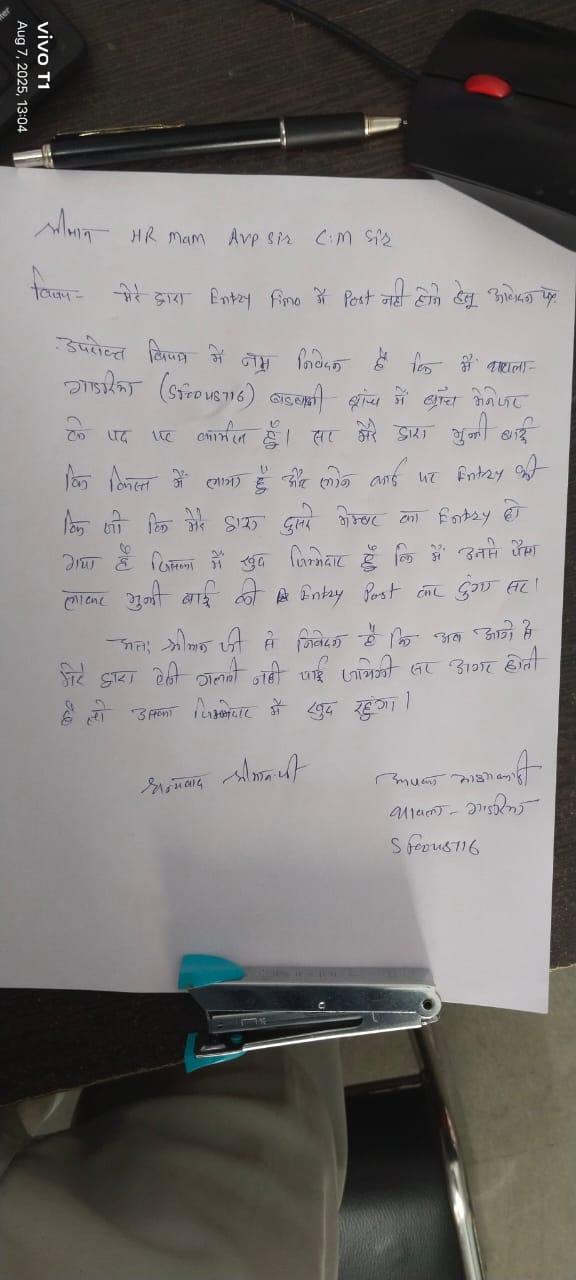 vivo T1
Aug 7, 2025, 13:04
श्रीमान HR mam AVP Sir C.M Sir
विषय- मेरे द्वारा Entry Fimo में Post नही होने हेतु आवेदन पत्र
उपरोक्त विषय में नम्र निवेदन है कि में
गाडरिया ब्रांच में ब्रांच मेनेजर
के पद पर कार्यरत हूँ। सर मेरे द्वारा मुन्नी बाई
कि किस्त में लाया हूँ और लोन कार्ड पर Entry की
कि जो कि मेरे द्वारा दुसरे मेम्बर का Entry हो
गया है जिसका में खुद जिम्मेदार हूँ कि में उनसे पैसा
लाकर मुन्नी बाई की Entry Post कर दुंगा सर।
अतः श्रीमान जी से निवेदन है कि अब आगे से
मेरे द्वारा ऐसी गलती नही पाई जायेगी सर अगर होती
है तो उसका जिम्मेदार में खुद रहुंगा।
धन्यवाद श्रीमान जी
आपका आज्ञाकारी
गाडरिया